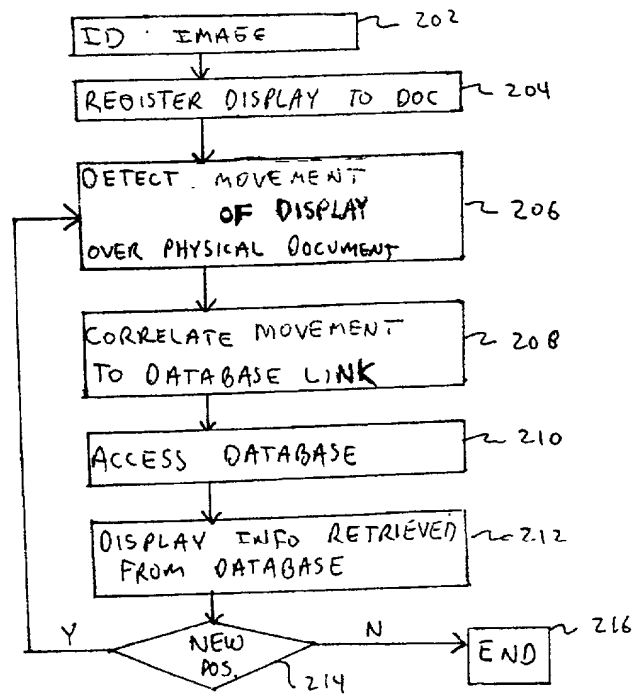 ID IMAGE 202
REGISTER DISPLAY TO DOC 204
DETECT MOVEMENT
OF DISPLAY 206
OVER PHYSICAL DOCUMENT
CORRELATE MOVEMENT 208
TO DATABASE LINK
ACCESS DATABASE 210
DISPLAY INFO RETRIEVED 212
FROM DATABASE
Y NEW N 216
POS. END
214